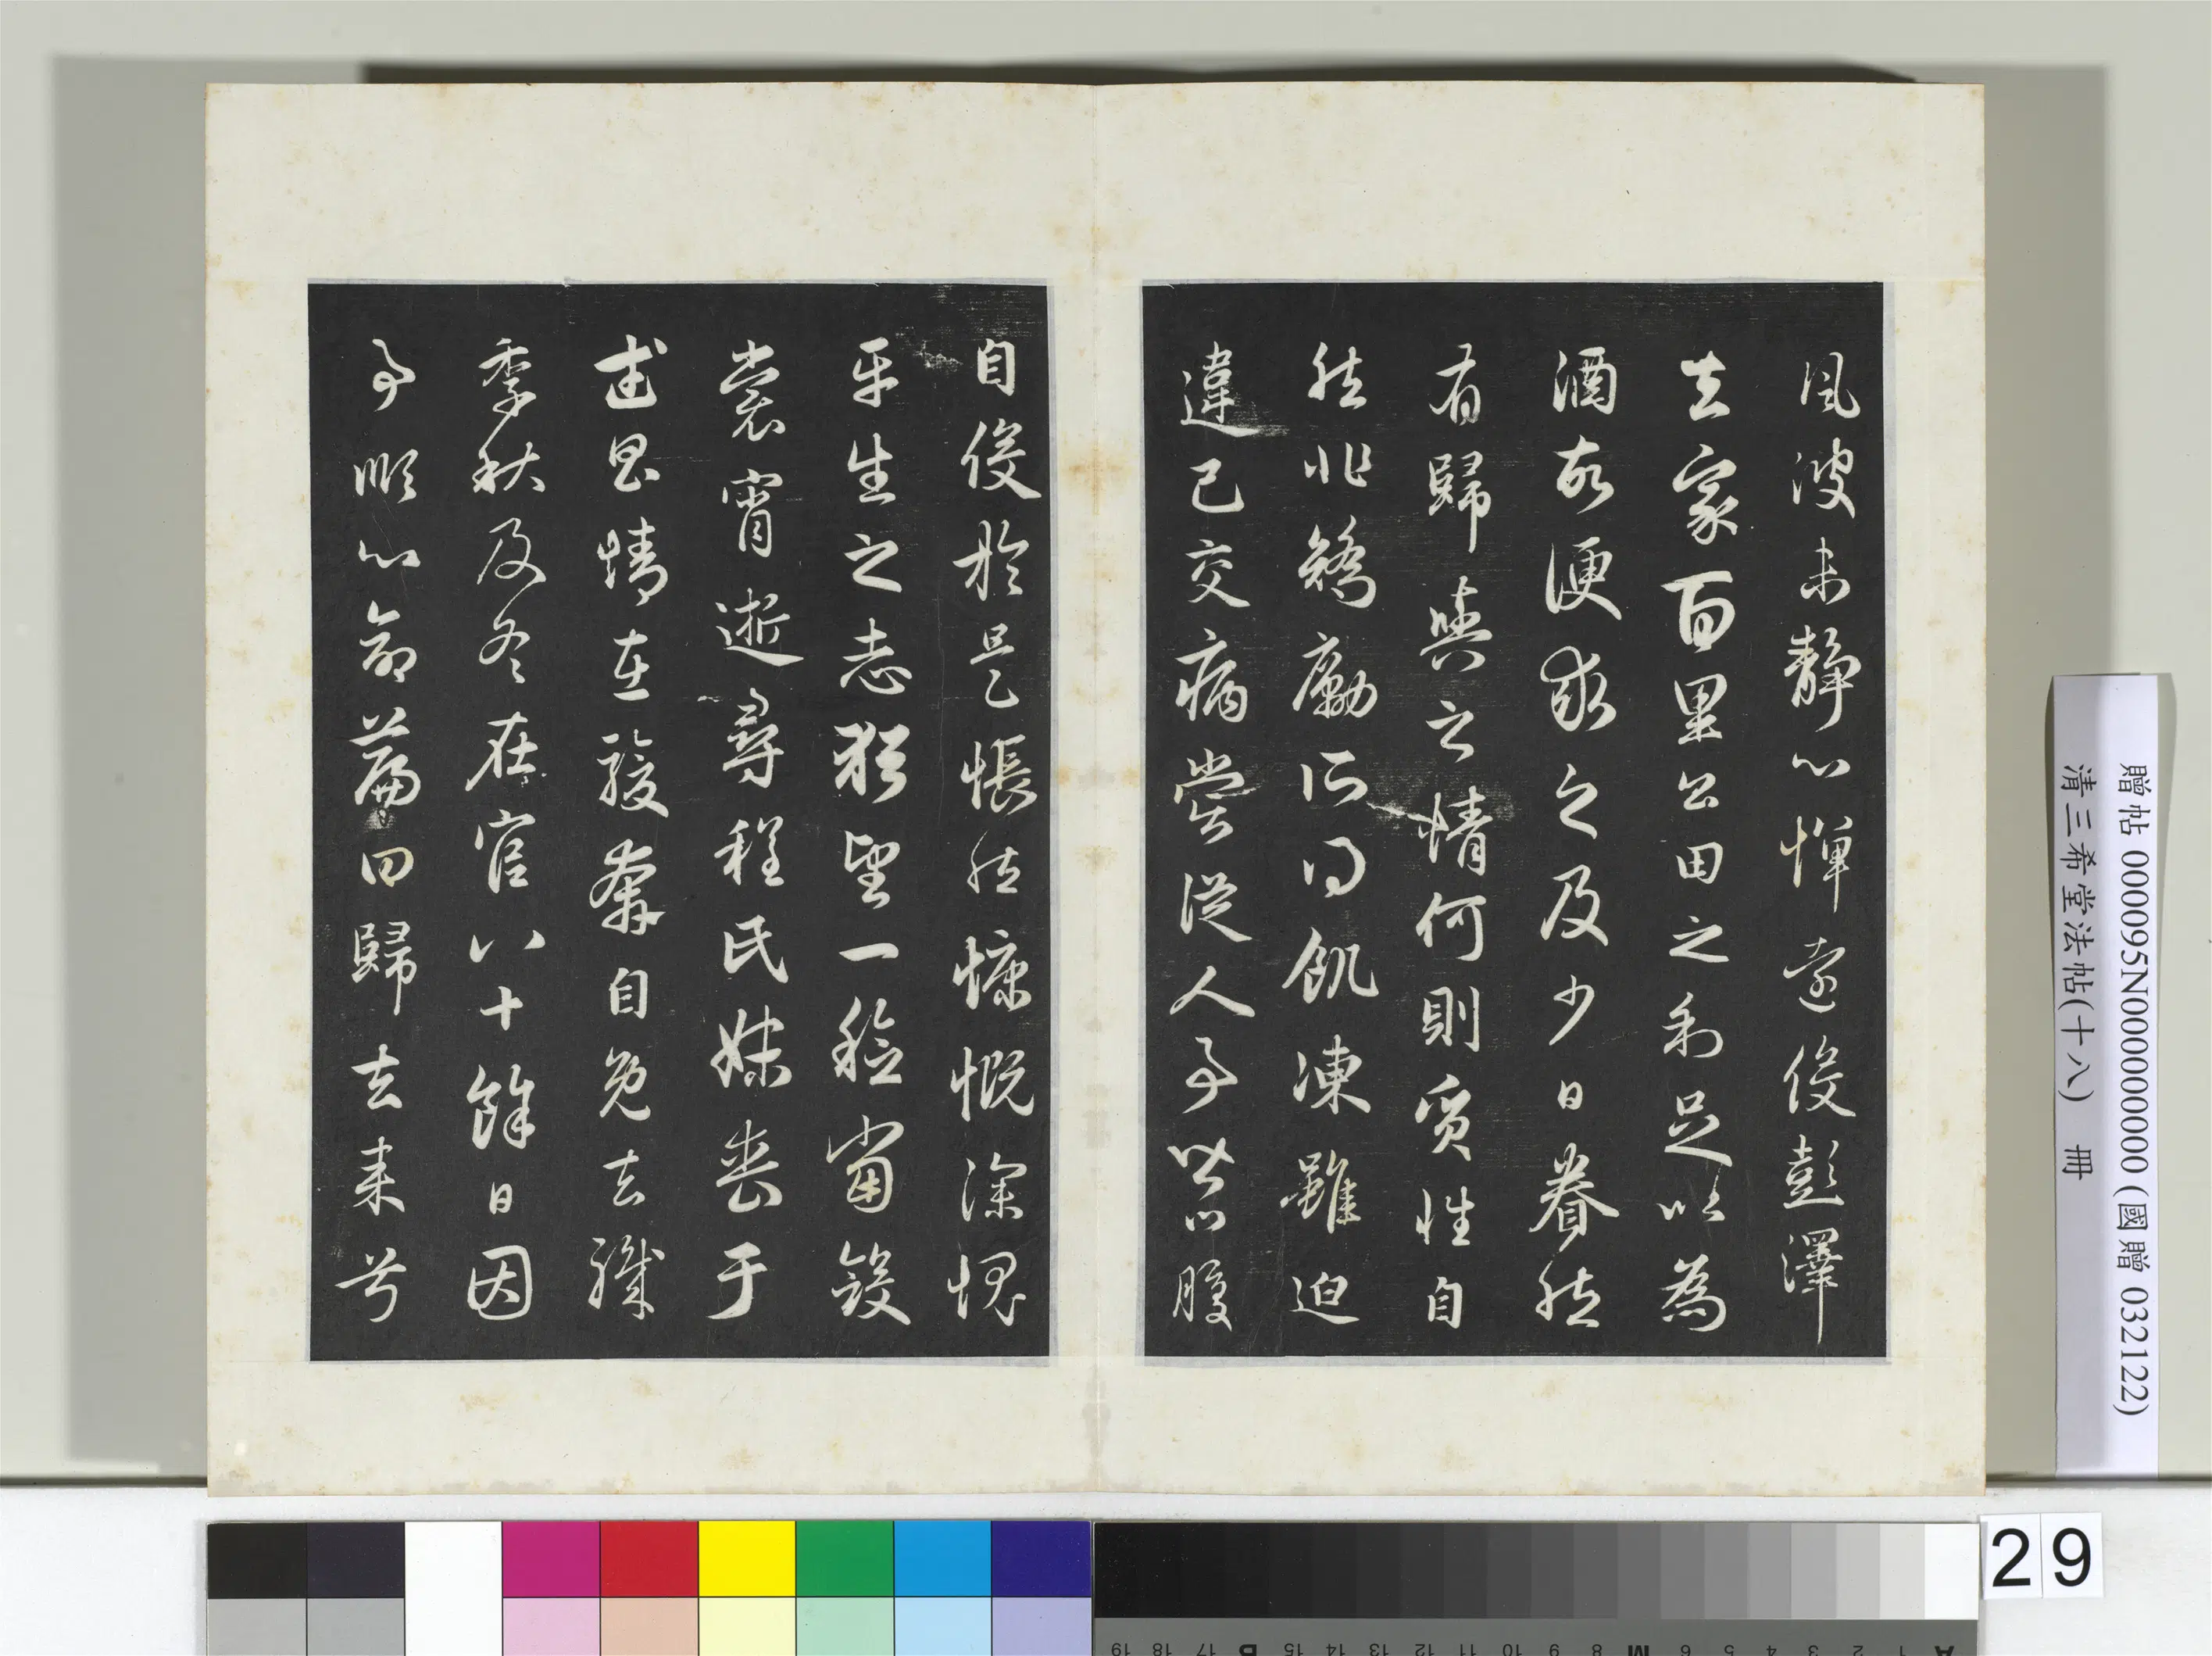 風波未靜心憚遠役彭澤
去家百里公田之利足以為
酒故便求之及少日眷然
有歸與之情何則質性自
然非矯勵所得飢凍雖迫
違己交病嘗從人事皆口腹
自役於是悵然慷慨深愧
平生之志猶望一稔當斂
裳宵逝尋程氏妹喪于
武昌情在駿奔自免去職
季秋及冬在官八十餘日因
事順心命篇曰歸去来兮
贈帖 000095N000000000 (國贈 032122)
清三希堂法帖(十八) 冊
29
A 1 2 3 4 5 6 M 8 9 10 11 12 13 14 15 B 17 18 19